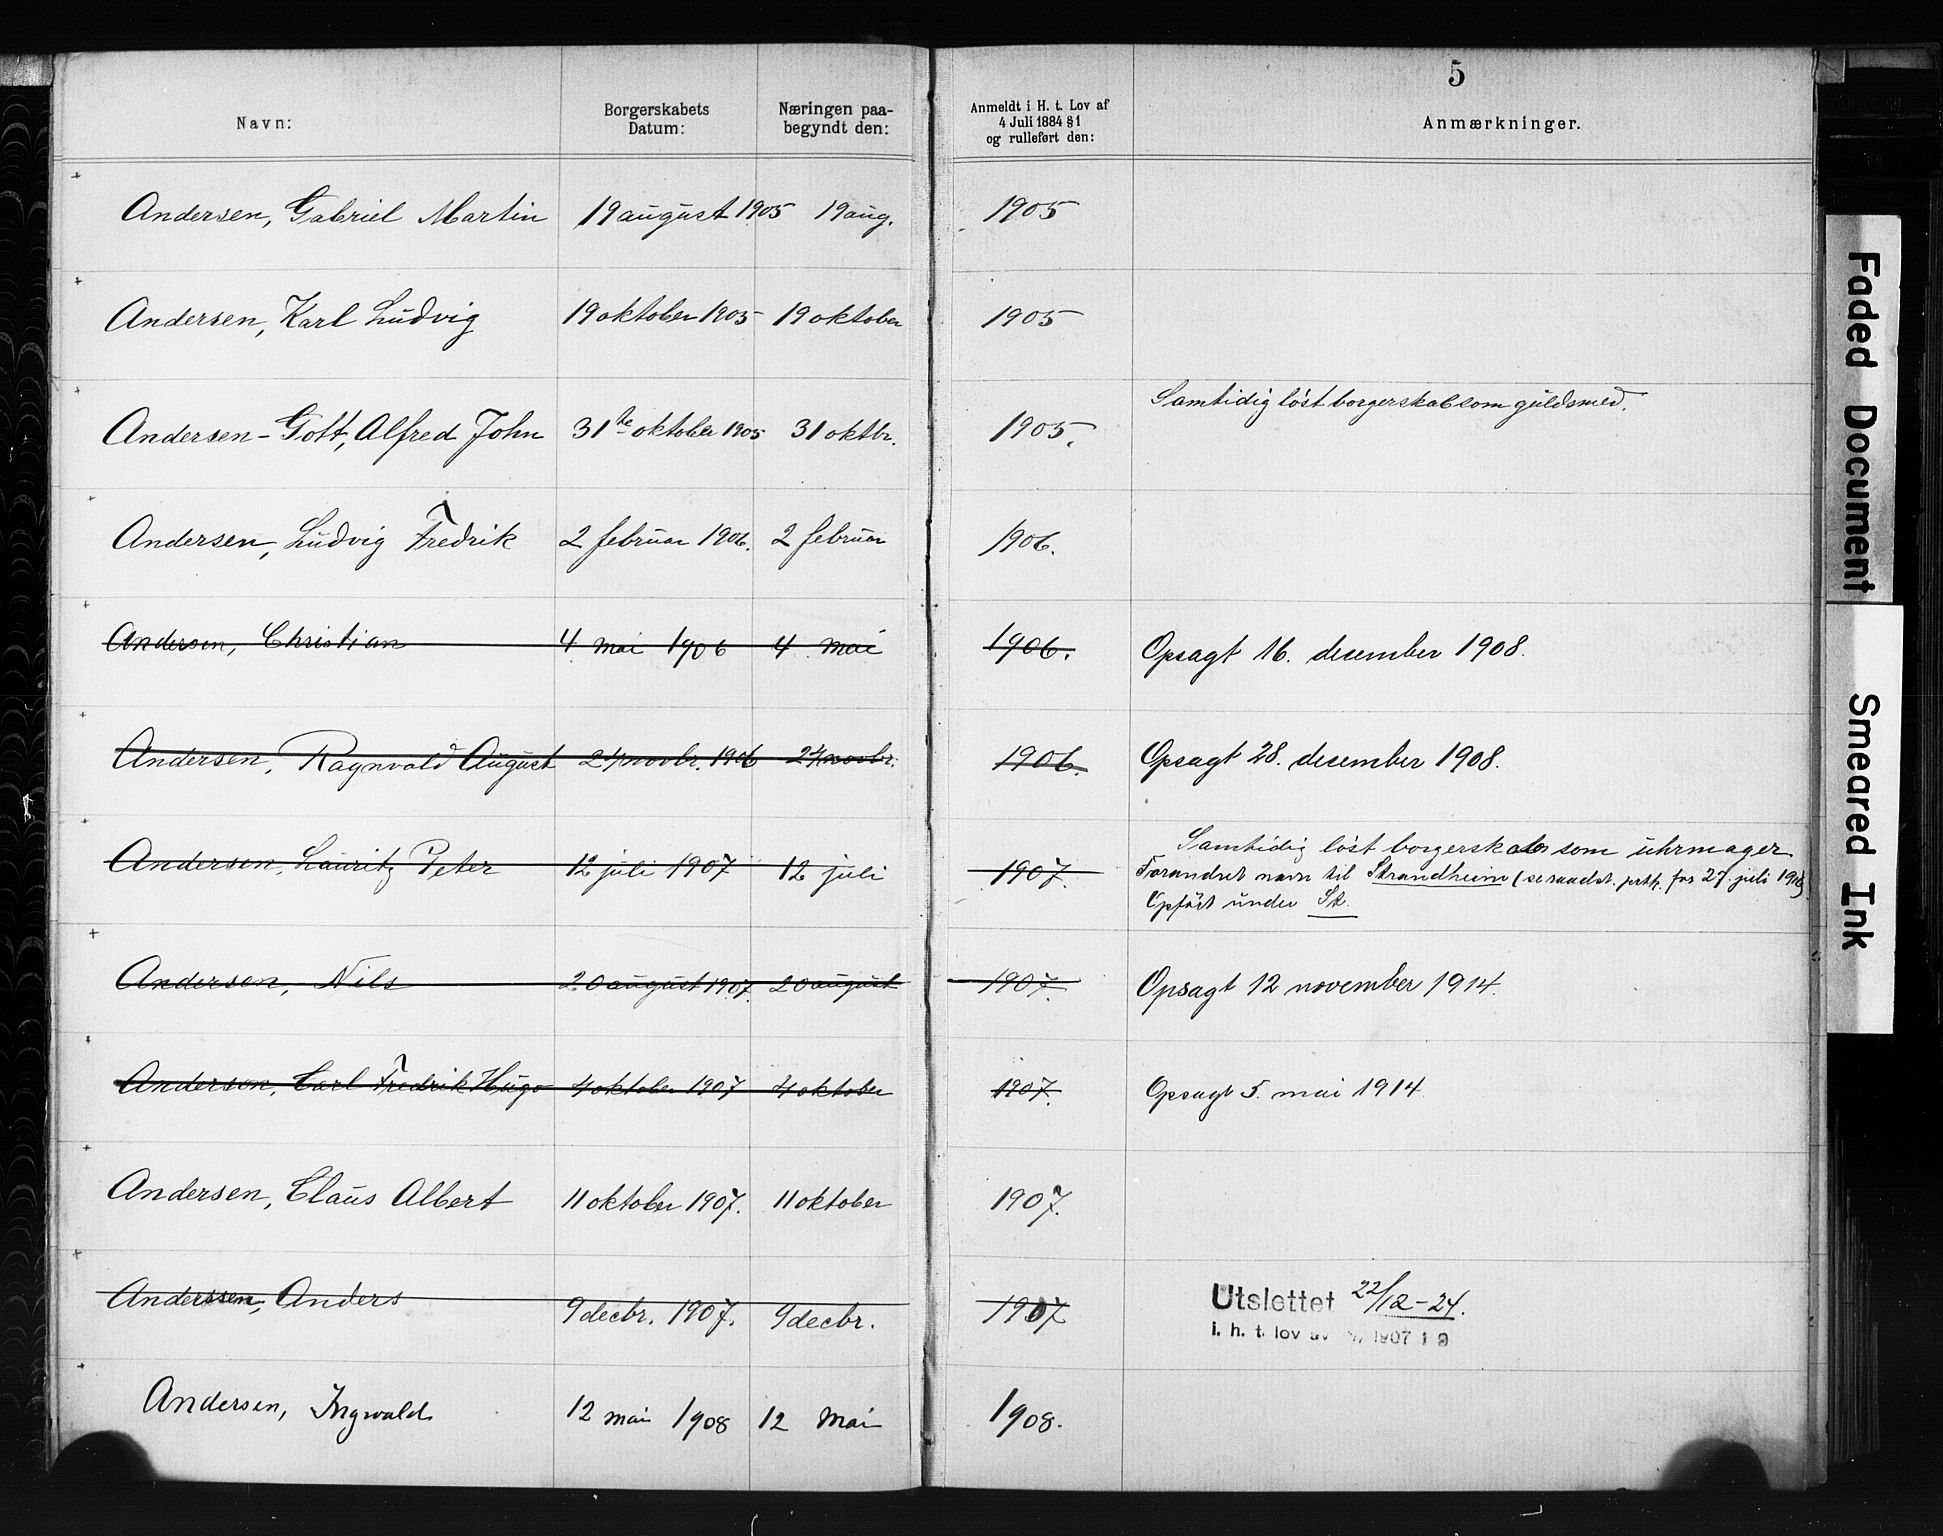 5
Navn: Borgerskabets Datum: Næringen paa-begyndt den: Anmeldt i H. t. Lov af 4 Juli 1884 §1 og rulleført den: Anmærkninger.
Andersen, Gabriel Martin 19 august 1905 19 aug. 1905
Andersen, Karl Ludvig 19 oktober 1905 19 oktober 1905
Samtidig löst borgerskab som guldsmed.
Andersen-Gott, Alfred John 31te oktober 1905 31 oktbr. 1905.
Andersen, Ludvig Fredrik 2 februar 1906. 2 februar 1906.
Andersen, Christian 4 mai 1906 4 mai 1906. Opsagt 16. desember 1908.
Andersen, Ragnvald August 24 novbr. 1906 24 novbr. 1906. Opsagt 28. desember 1908.
Samtidig löst borgerskab som uhrmager
Andersen, Lauritz Peter 12 juli 1907 12 juli 1907. Forandret navn til Strandheim (se raadst. prtk. for 27. juli
Opfört under St.
Andersen, Nils 20 august 1907. 20 august 1907. Opsagt 12 november 1914.
Andersen, Carl Fredrik Hugo 4 oktober 1907 4 oktober 1907. Opsagt 5. mai 1914
Andersen, Claus Albert 11 oktober 1907. 11 oktober 1907.
Anderssen, Anders 9 decbr. 1907. 9 decbr. 1907 Utslettet 22/12-24.
i. h. t. lov av 1907
Andersen, Ingwald 12 mai 1908 12 Mai 1908.
Faded Document
Smeared Ink